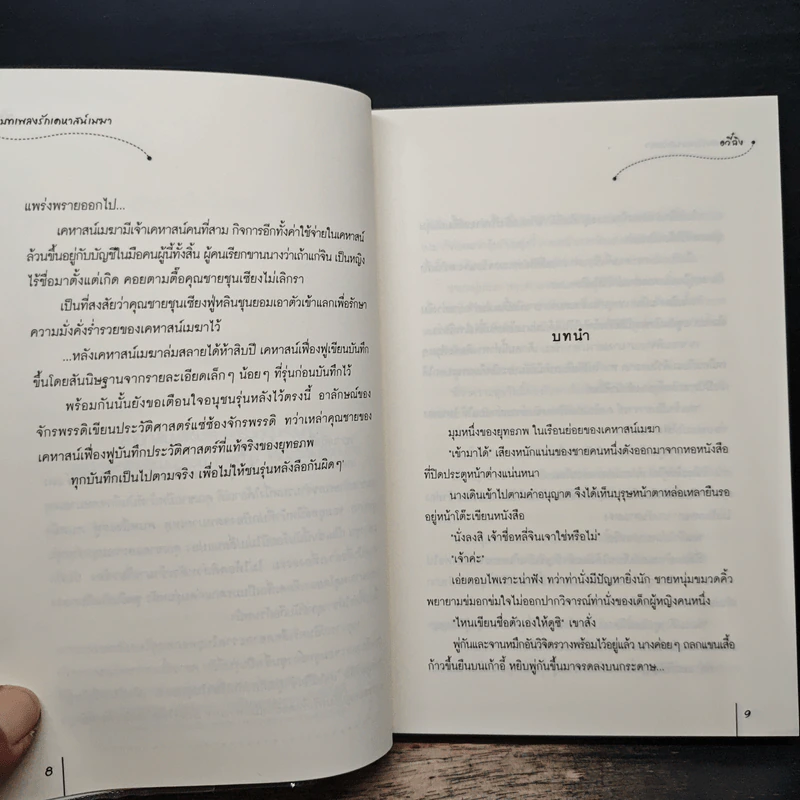 บทเพลงรักเคหาสน์เมฆา
แพร่งพรายออกไป...
เคหาสน์เมฆามีเจ้าเคหาสน์คนที่สาม กิจการอีกทั้งค่าใช้จ่ายในเคหาสน์
ล้วนขึ้นอยู่กับบัญชีในมือคนผู้นี้ทั้งสิ้น ผู้คนเรียกขานนางว่าเถ้าแก่จิน เป็นหญิง
ไร้ชื่อมาตั้งแต่เกิด คอยตามตื๊อคุณชายชุนเซียงไม่เลิกรา
เป็นที่สงสัยว่าคุณชายชุนเซียงฟู่หลินชุนยอมเอาตัวเข้าแลกเพื่อรักษา
ความมั่งคั่งร่ำรวยของเคหาสน์เมฆาไว้
...หลังเคหาสน์เมฆาล่มสลายได้ห้าสิบปี เคหาสน์เฟื่องฟูเขียนบันทึก
ขึ้นโดยสันนิษฐานจากรายละเอียดเล็กๆ น้อยๆ ที่รุ่นก่อนบันทึกไว้
พร้อมกันนั้นยังขอเตือนใจอนุชนรุ่นหลังไว้ตรงนี้ อาลักษณ์ของ
จักรพรรดิเขียนประวัติศาสตร์แซ่ซ้องจักรพรรดิ ทว่าเหล่าคุณชายของ
เคหาสน์เฟื่องฟูบันทึกประวัติศาสตร์ที่แท้จริงของยุทธภพ
ทุกบันทึกเป็นไปตามจริง เพื่อไม่ให้ชนรุ่นหลังลือกันผิดๆ'
8
อวี๋ฉิง
บทนำ
มุมหนึ่งของยุทธภพ ในเรือนย่อยของเคหาสน์เมฆา
"เข้ามาได้" เสียงหนักแน่นของชายคนหนึ่งดังออกมาจากหอหนังสือ
ที่ปิดประตูหน้าต่างแน่นหนา
นางเดินเข้าไปตามคำอนุญาต จึงได้เห็นบุรุษหน้าตาหล่อเหลายืนรอ
อยู่หน้าโต๊ะเขียนหนังสือ
"นั่งลงสิ เจ้าชื่อหลี่จินเจาใช่หรือไม่"
"เจ้าค่ะ"
เอ่ยตอบไพเราะน่าฟัง ทว่าท่านั่งมีปัญหายิ่งนัก ชายหนุ่มขมวดคิ้ว
พยายามข่มอกข่มใจไม่ออกปากวิจารณ์ท่านั่งของเด็กผู้หญิงคนหนึ่ง
"ไหนเขียนชื่อตัวเองให้ดูซิ" เขาสั่ง
พู่กันและจานหมึกอันวิจิตรวางพร้อมไว้อยู่แล้ว นางค่อยๆ ถลกแขนเสื้อ
ก้าวขึ้นยืนบนเก้าอี้ หยิบพู่กันขึ้นมาจรดลงบนกระดาษ...
9